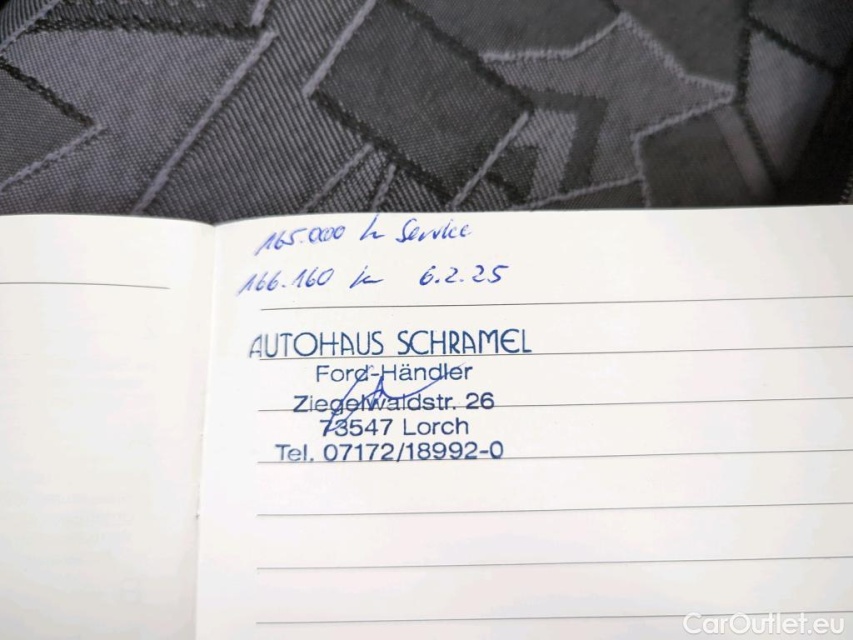 165.000 km Service
166.160 km 6.2.25
AUTOHAUS SCHRAMEL
Ford-Händler
Ziegelwaldstr. 26
73547 Lorch
Tel. 07172/18992-0
CarOutlet.eu